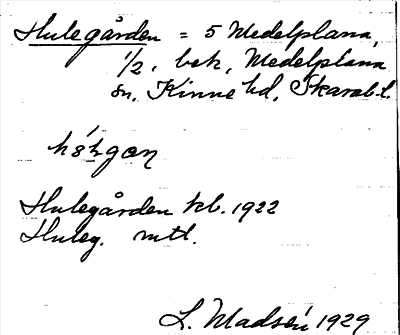 Hulegården = 5 Medelplana,
1/2, bek, Medelplana
sn, Kinne hd, Skarab.l.
Hulegården kb. 1922
Huleg. mtl.
L. Madsén 1929